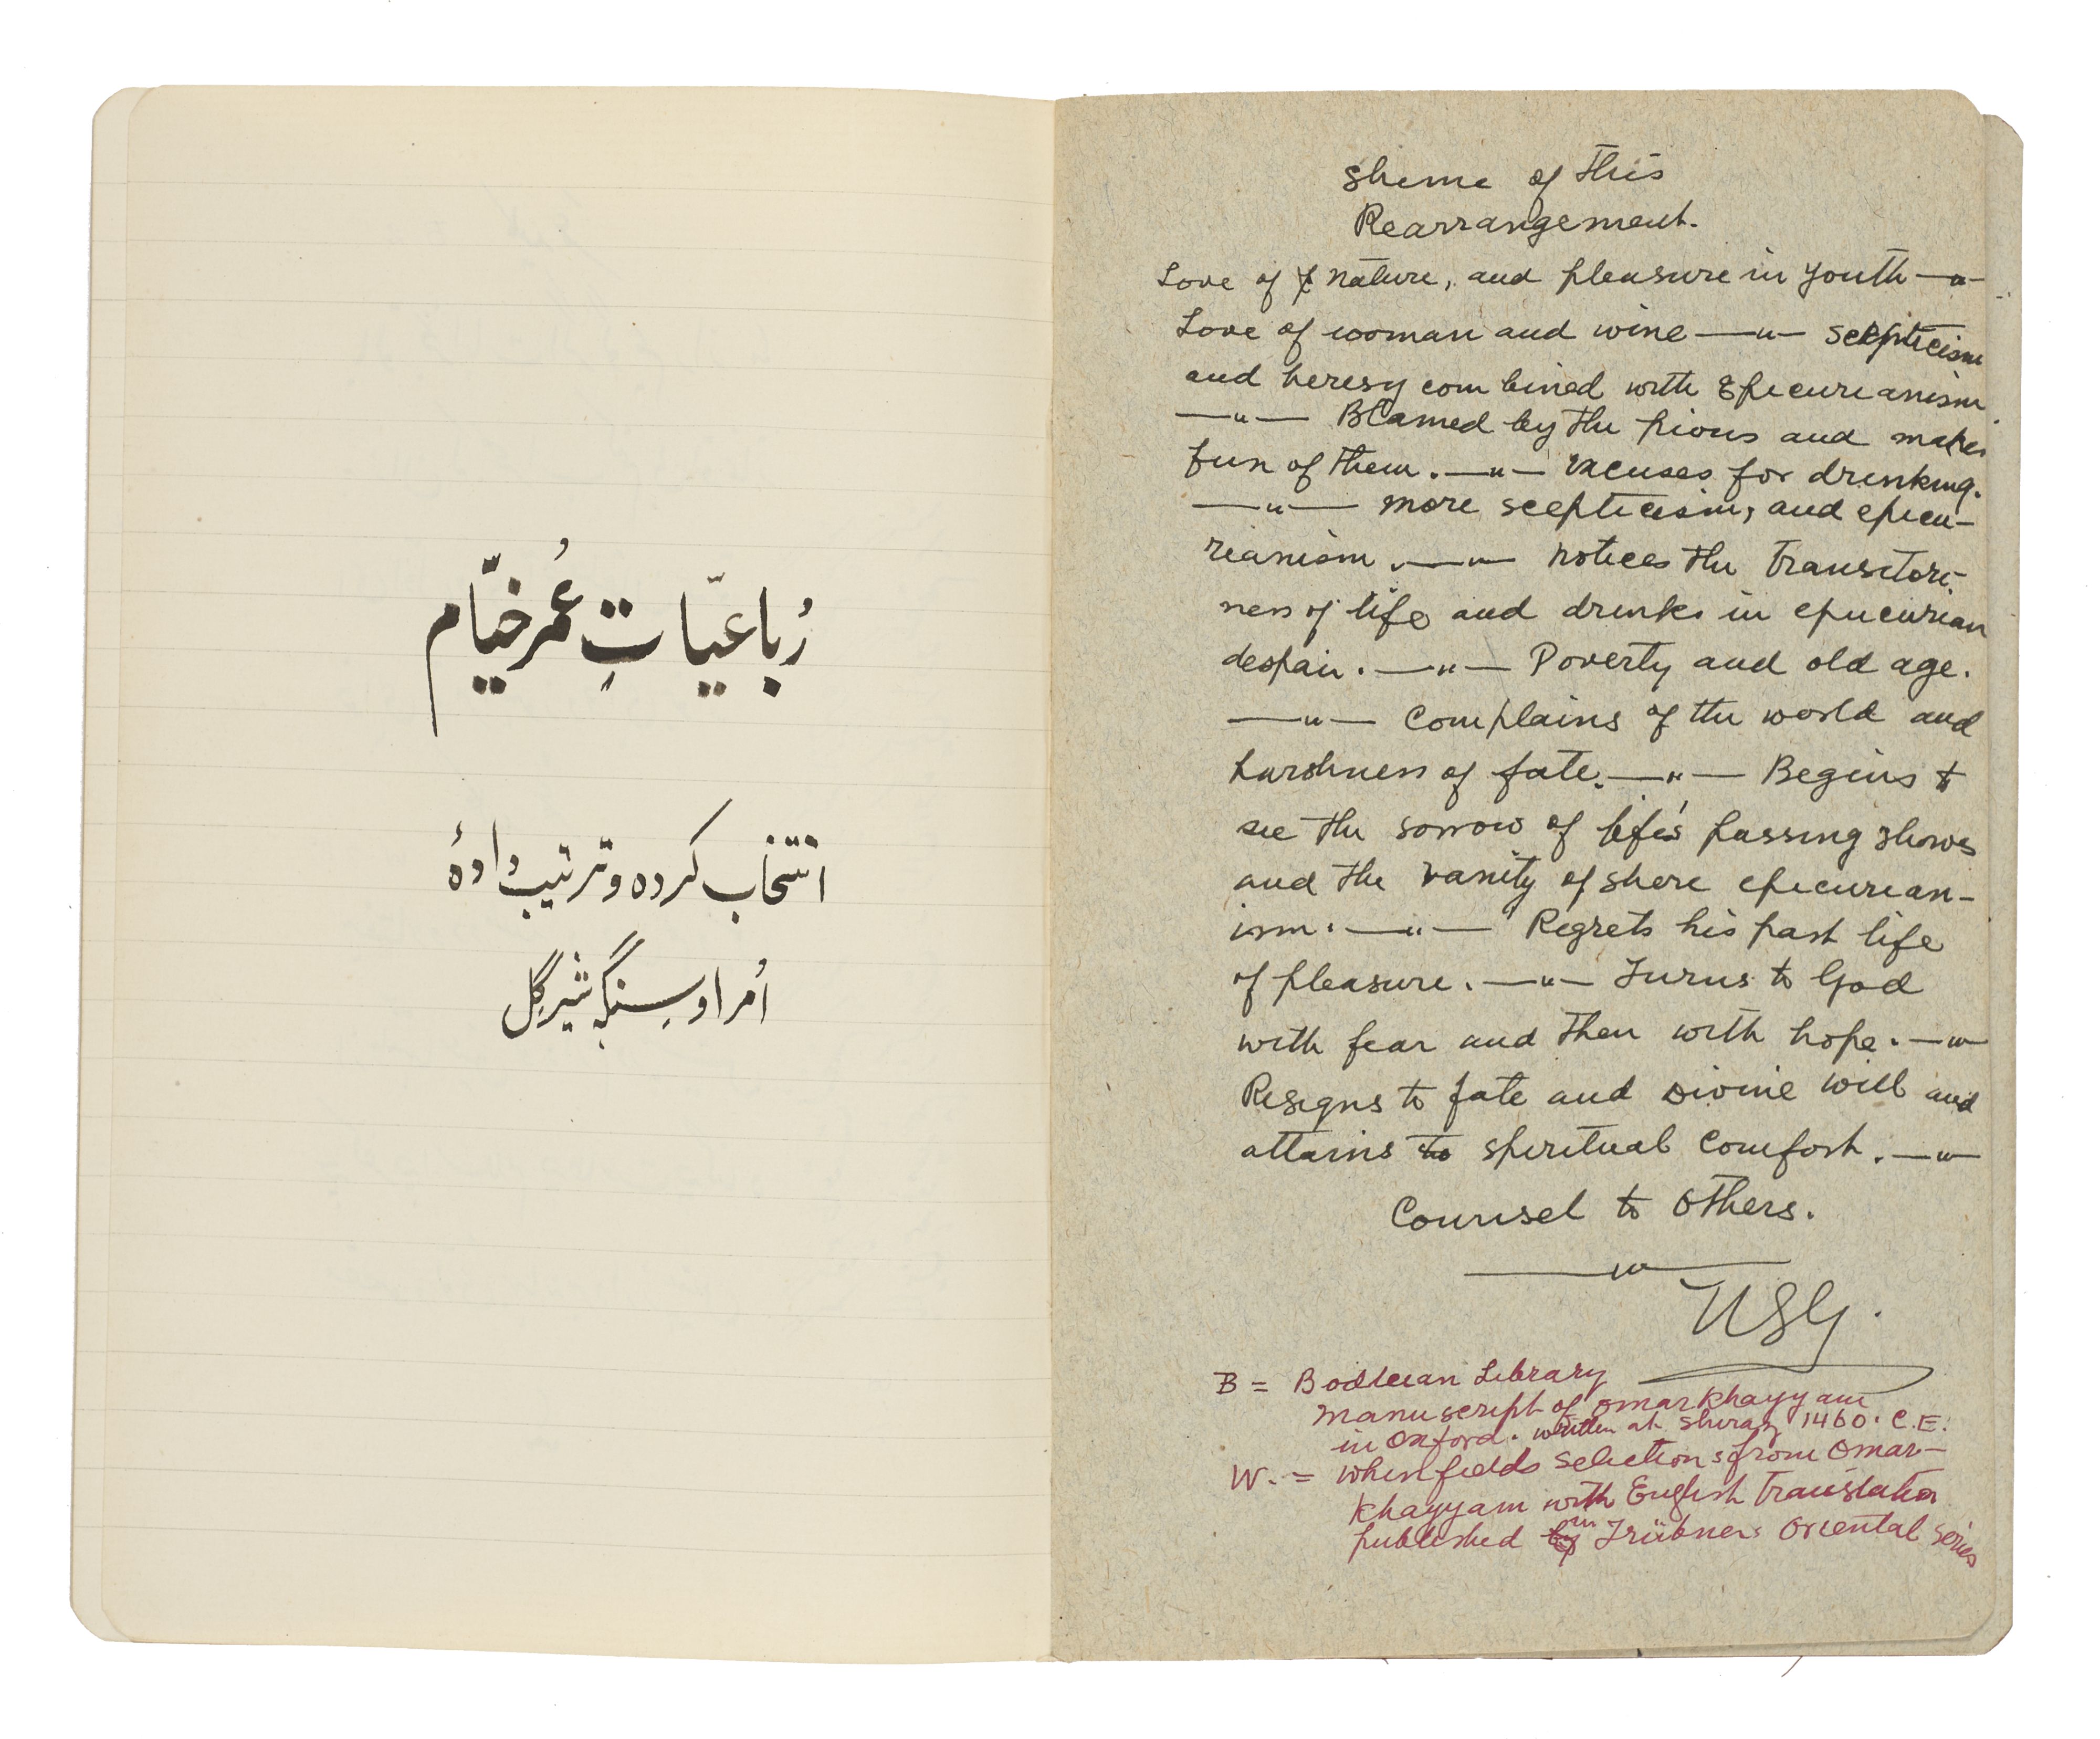 رُباعیّاتِ عُمر خیّام
انتخاب کرده و ترتیب دادهٔ
اُمراو سِنگِہ شیرگِل
Sheme of this
Rearrangement.
Love of nature, and pleasure in youth —"—
Love of woman and wine —"— Scepticism
and heresy combined with Epicurianism
—"— Blamed by the pious and makes
fun of them. —"— excuses for drinking.
—"— more scepticism, and epicu-
rianism. —"— notices the transitori-
ness of life and drinks in epicurian
despair. —"— Poverty and old age.
—"— Complains of the world and
harshness of fate. —"— Begins to
see the sorrow of life's passing shows
and the vanity of shere epicurean-
ism. —"— Regrets his past life
of pleasure. —"— Turns to God
with fear and then with hope. —"—
Resigns to fate and Divine will and
attains to spiritual comfort. —"—
Counsel to others.
—"—
USG.
B = Bodleian Library
Manuscript of Omar Khayyam
in Oxford. written at Shiraz 1460. C.E.
W. = Whinfields Selections from Omar-
Khayyam with English Translation
published in Trübners Oriental Series